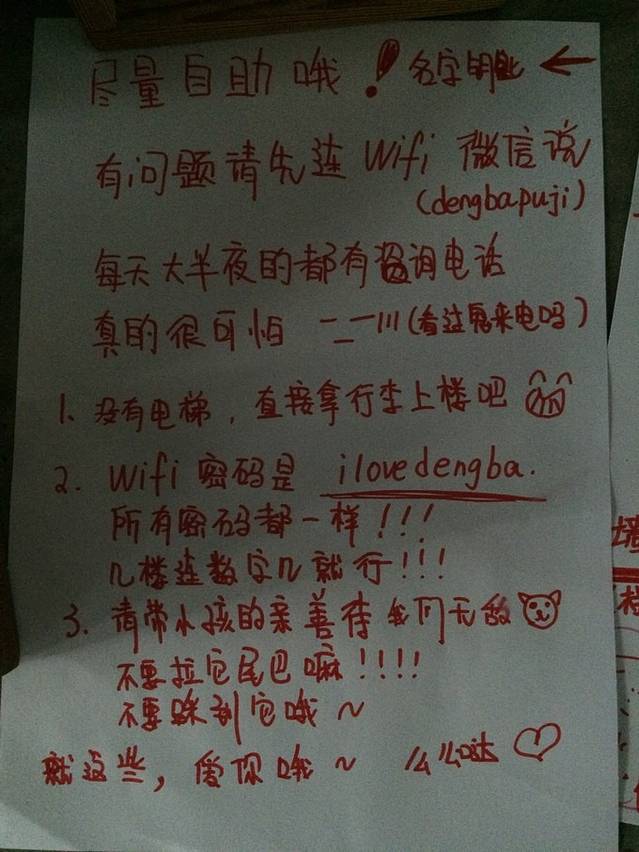 尽量自助哦！名字钥匙 ←
有问题请先连 Wifi 微信说
(dengbapuji)
每天大半夜的都有咨询电话
真的很可怕 (看过鬼来电吗)
1. 没有电梯，直接拿行李上楼吧
2. Wifi 密码是 ilovedengba.
所有密码都一样!!!
几楼连数字几就行!!!
3. 请带小孩的亲善待我们无敌
不要拉它尾巴嘛!!!!
不要踩到它哦~
就这些，爱你哦~ 么么哒